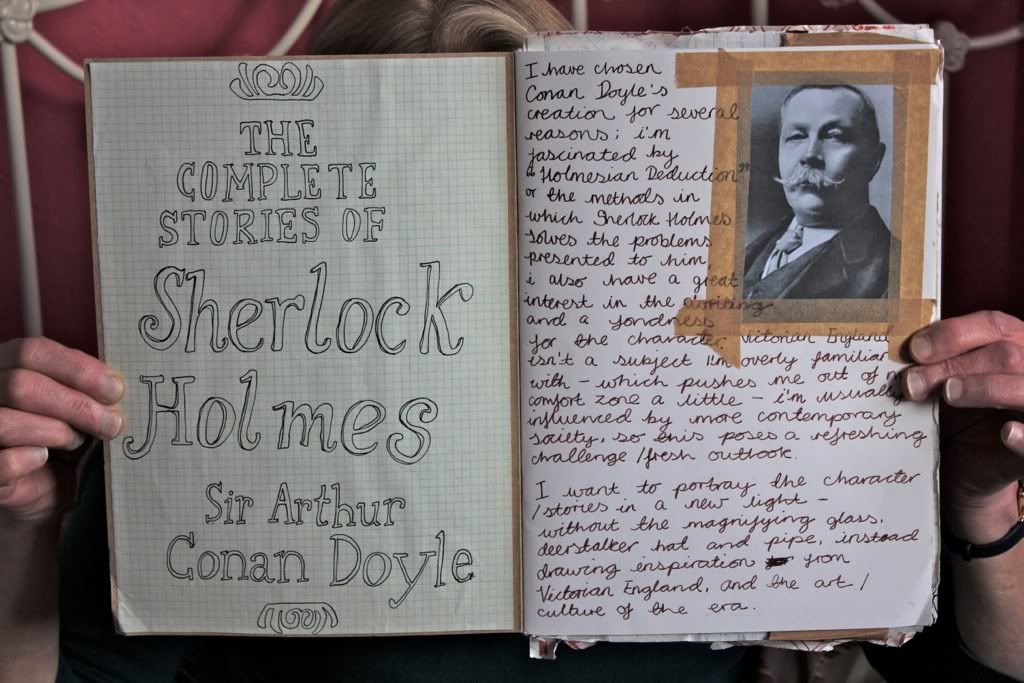 THE
COMPLETE
STORIES OF
Sherlock
Holmes
Sir Arthur
Conan Doyle
I have chosen
Conan Doyle's
creation for several
reasons; i'm
fascinated by
"Holmesian Deduction"
or the methods in
which Sherlock Holmes
solves the problems
presented to him,
i also have a great
interest in the writing
and a fondness
for the character. Victorian England
isn't a subject I'm overly familiar
with - which pushes me out of my
comfort zone a little - i'm usually
influenced by more contemporary
society, so this poses a refreshing
challenge/fresh outlook.
I want to portray the character
/stories in a new light -
without the magnifying glass,
deerstalker hat and pipe, instead
drawing inspiration from
Victorian England, and the art/
culture of the era.